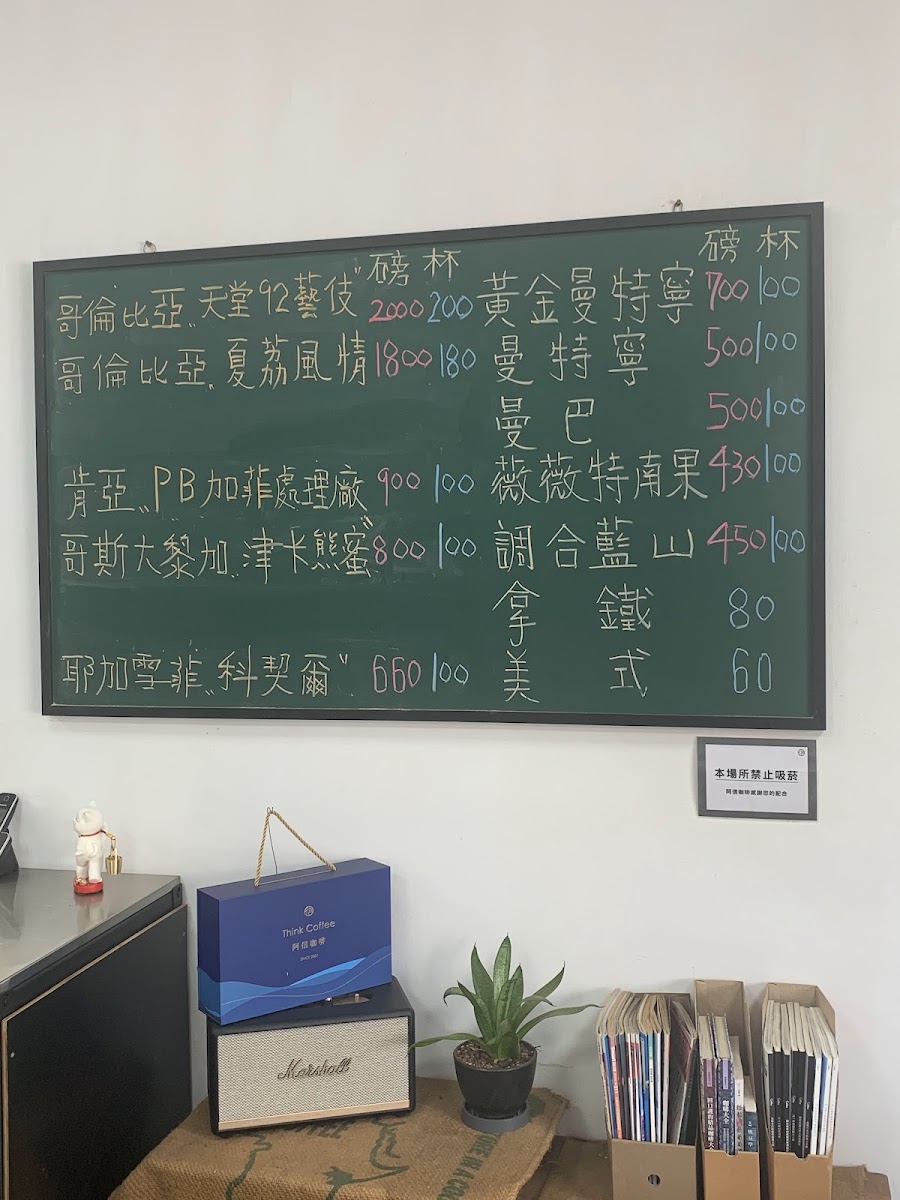 磅 杯
哥倫比亞"天堂92藝伎" 2000 200
哥倫比亞"夏荔風情 1800 180
肯亞"PB加菲處理廠 900 100
哥斯大黎加"津卡熊蜜" 800 100
耶加雪菲"科契爾" 660 100
磅 杯
黃金曼特寧 700 100
曼特寧 500 100
曼巴 500 100
薇薇特南果 430 100
調合藍山 450 100
拿鐵 80
美式 60
本場所禁止吸菸
阿信咖啡感謝您的配合
Think Coffee
阿信咖啡
Marshall